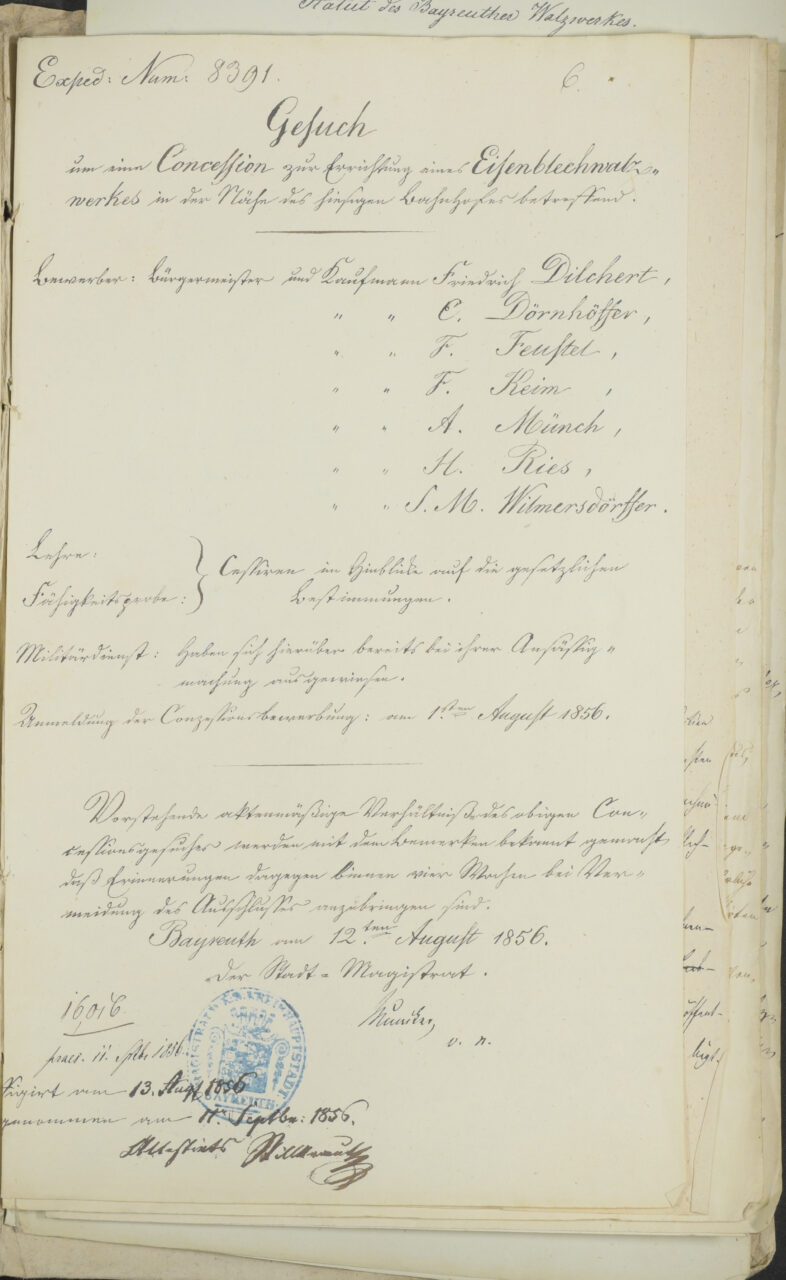 Statut des Bayreuther Walzwerkes.
Exped: Num: 8391.
6.
Gesuch
um eine Concession zur Errichtung eines Eisenblechwalz-
werkes in der Nähe des hiesigen Bahnhofes betreffend.
Bewerber: Bürgermeister und Kaufmann Friedrich Dilchert,
" " C. Dörnhöffer,
" " F. Feustel,
" " F. Keim,
" " A. Münch,
" " H. Ries,
" " S. M. Wilmersdörffer.
Lehre:
Cessiren im Hinblicke auf die gesetzlichen
Fähigkeitsprobe:
Bestimmungen.
Militärdienst: Haben sich hierüber bereits bei ihrer Ansässig"
machung ausgewiesen.
Anmeldung der Conzessionsbewerbung: am 1.sten August 1856.
Vorstehende aktenmäßige Verhältniße des obigen Con"
cessionsgesuches werden mit dem Bemerken bekannt gemacht,
daß Erinnerungen dagegen binnen vier Wochen bei Ver"
meidung des Ausschlusses anzubringen sind.
Bayreuth am 12.ten August 1856.
Der Stadt-Magistrat.
16016
Muncker,
praes. 11. Septb. 1856.
v. n.
MAGISTRAT KREISHAUPTSTADT BAYREUTH
figirt am 13. Aug 1856
genommen am 11. Septbr: 1856.